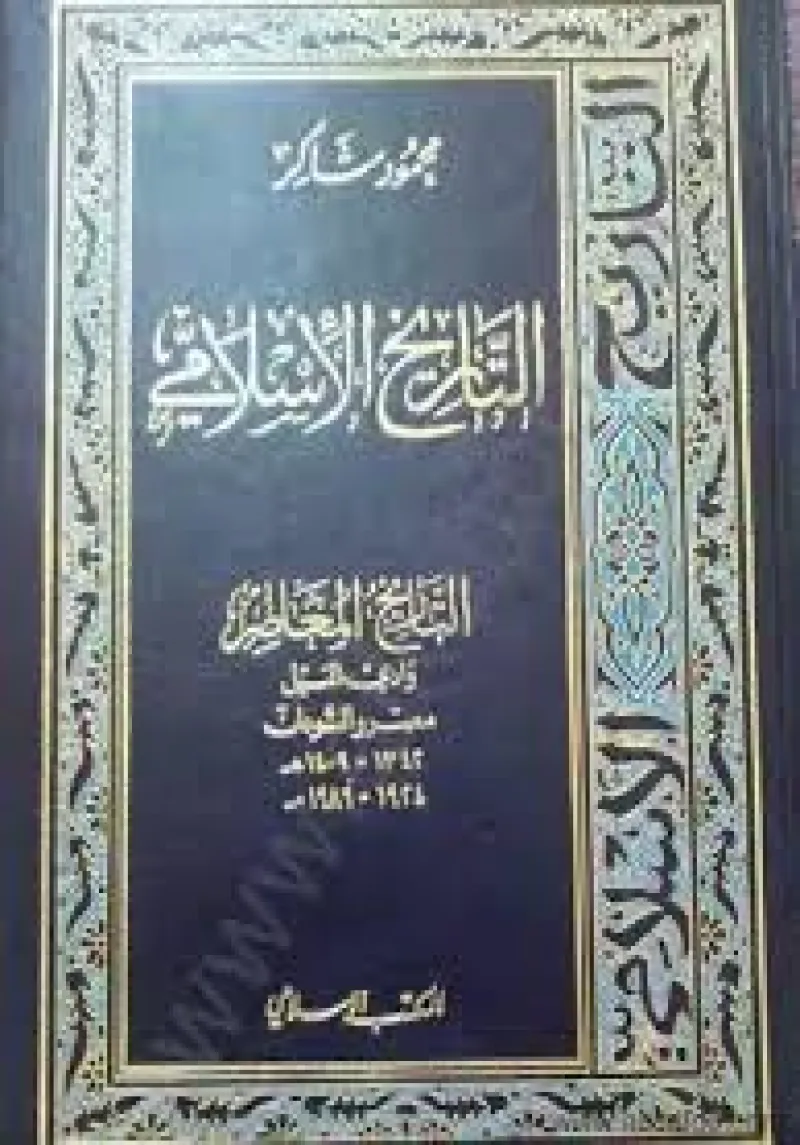 محمود شاكر
التاريخ الإسلامي
التاريخ المعاصر
وادي النيل
مصر والسودان
١٣٤٢ - ١٤٠٩ هـ
١٩٢٤ - ١٩٨٩ م
المكتب الإسلامي
التاريخ الإسلامي
www